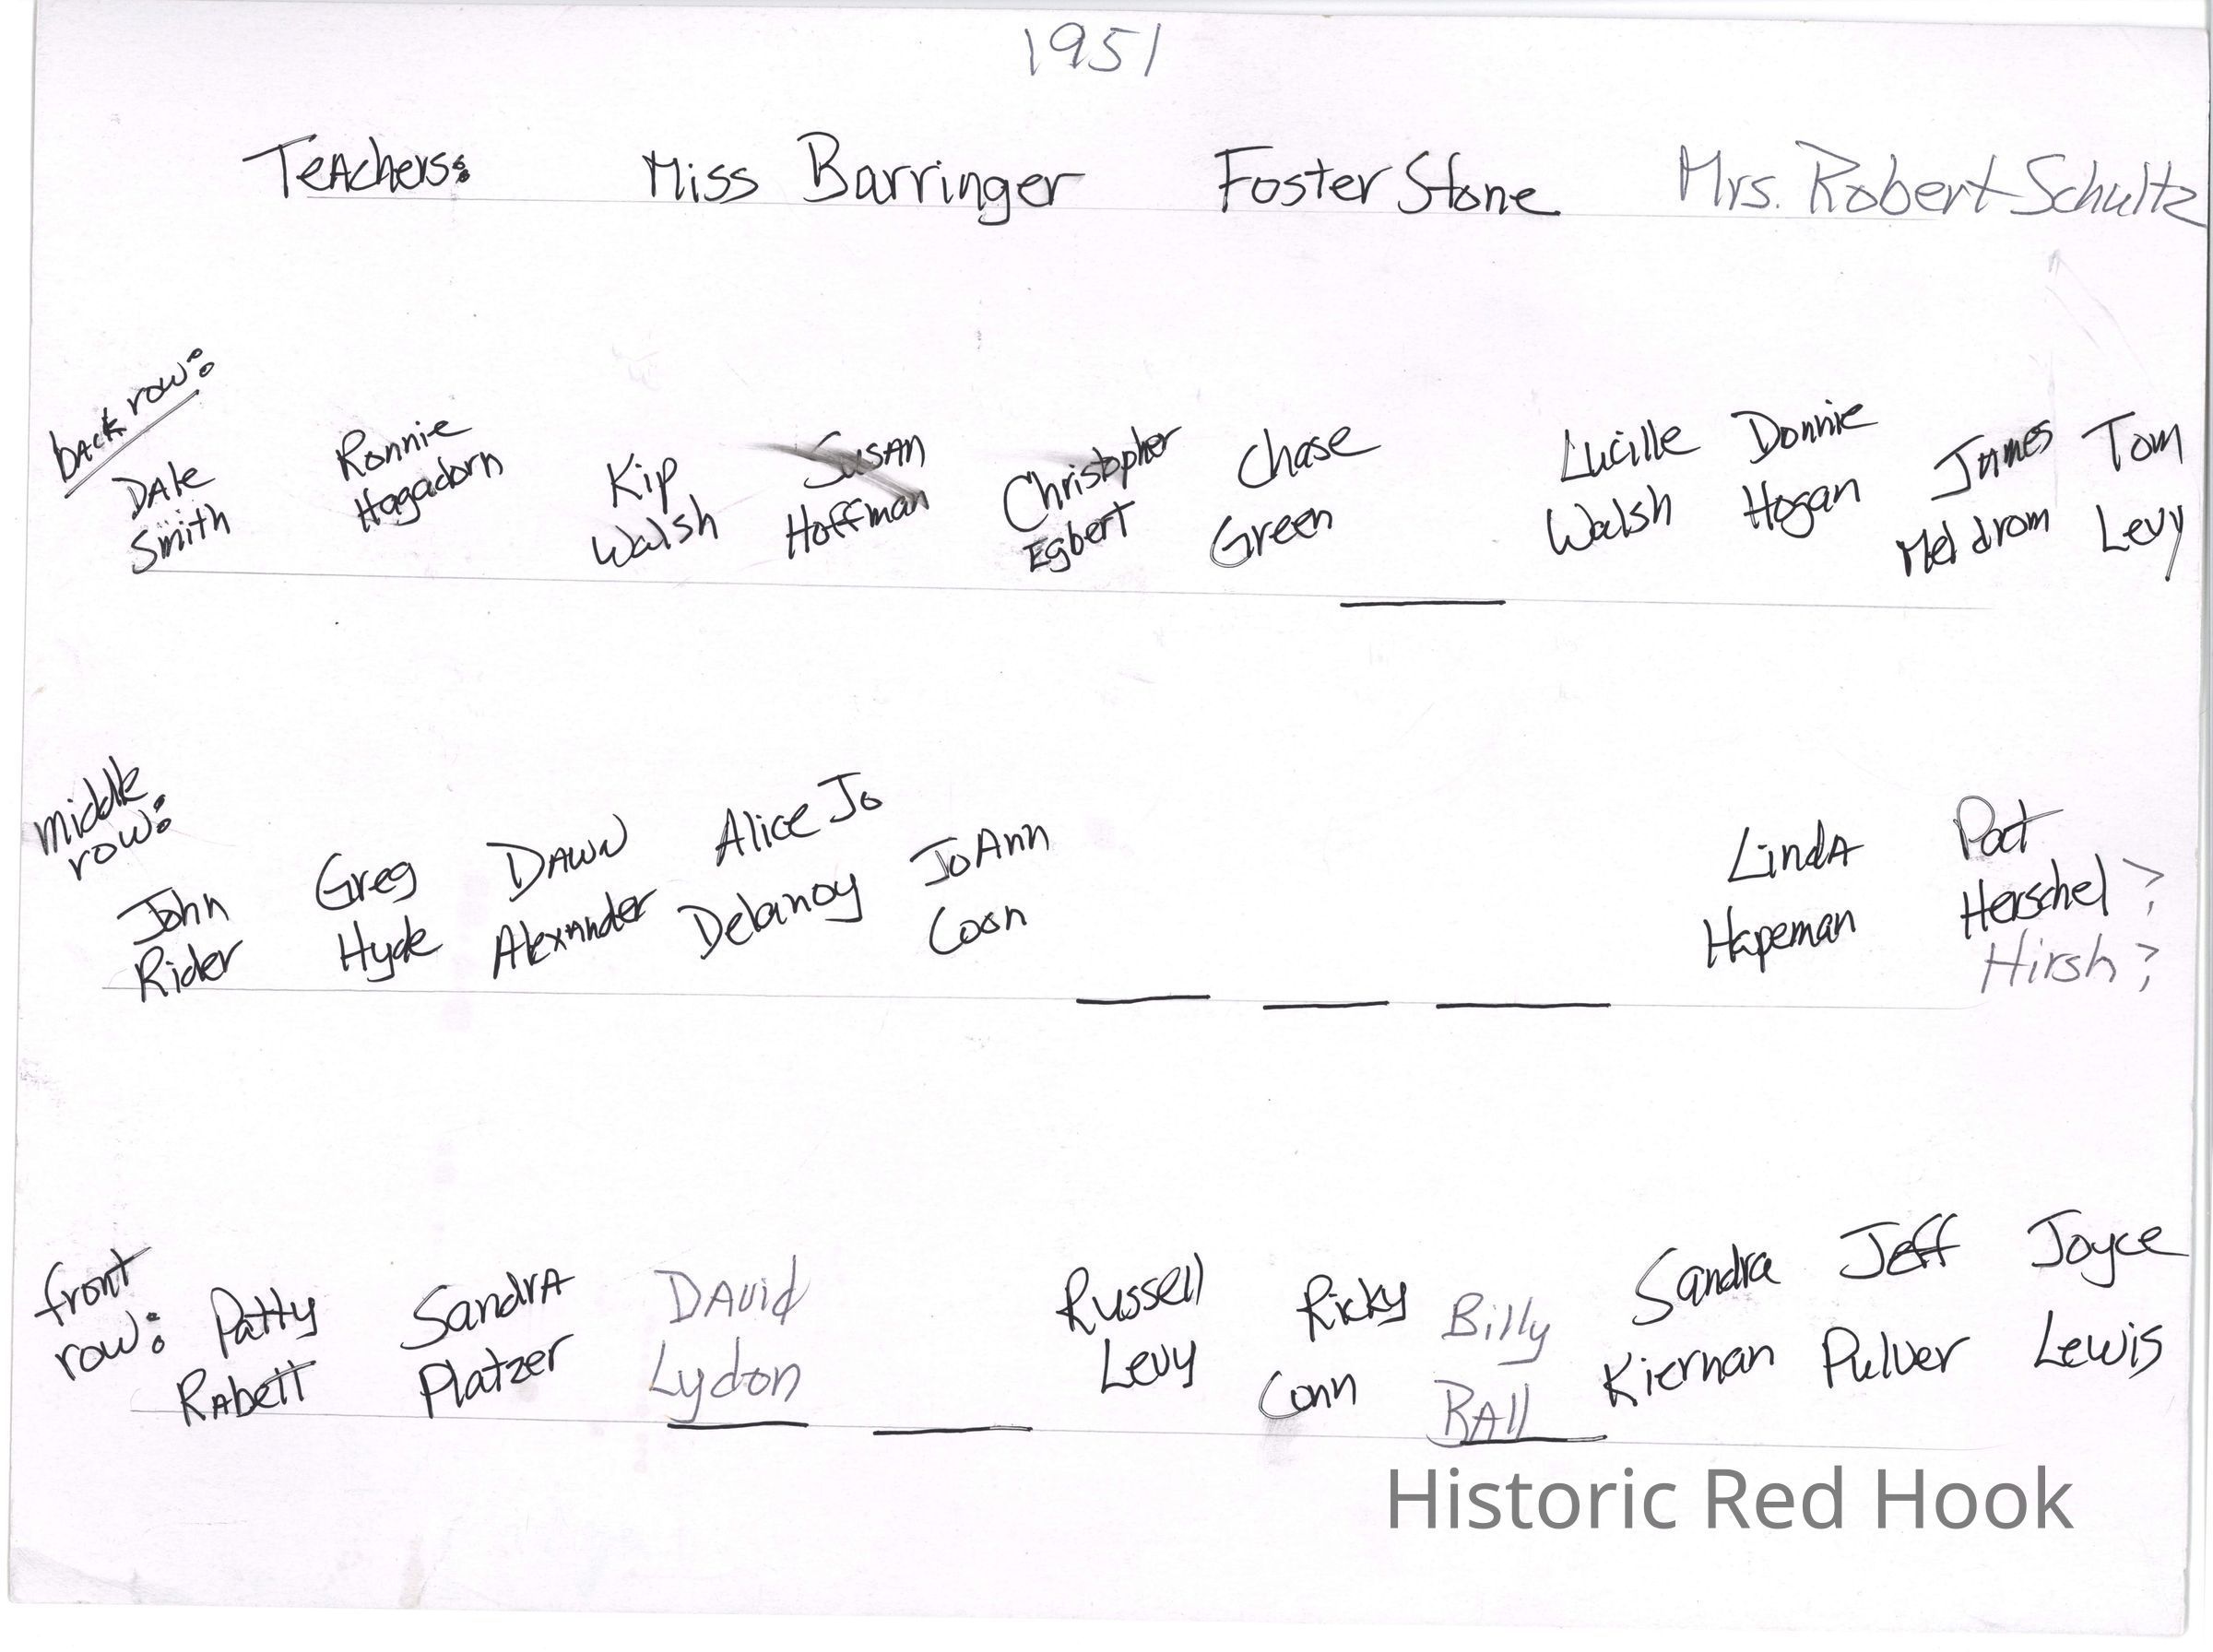 1951
Teachers: Miss Barringer Foster Stone Mrs. Robert Schultz
back row:
Dale Smith
Ronnie Hagadorn
Kip Walsh
Susan Hoffman
Christopher Egbert
Chase Green
Lucille Walsh
Donnie Hogan
James Meldrom
Tom Levy
middle row:
John Rider
Greg Hyde
Dawn Alexander
Alice Jo Delanoy
JoAnn Coon
Linda Hapeman
Pat Herschel?
Hirsh?
front row:
Patty Rabett
Sandra Platzer
David Lydon
Russell Levy
Ricky Conn
Billy Ball
Sandra Kiernan
Jeff Pulver
Joyce Lewis
Historic Red Hook